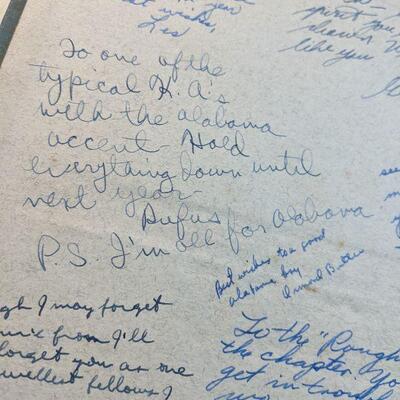 year
Les
spirit you
like you
To one of the
typical K.A's
with the alabama
accent - Hold
everything down until
next year -
Rufus
P.S. I'm all for alabama
Best wishes to a good
alabama boy
gh I may forget
from I'll
forget you as one
swellest fellows I
To the "Rough
the chapter. You
get in trou